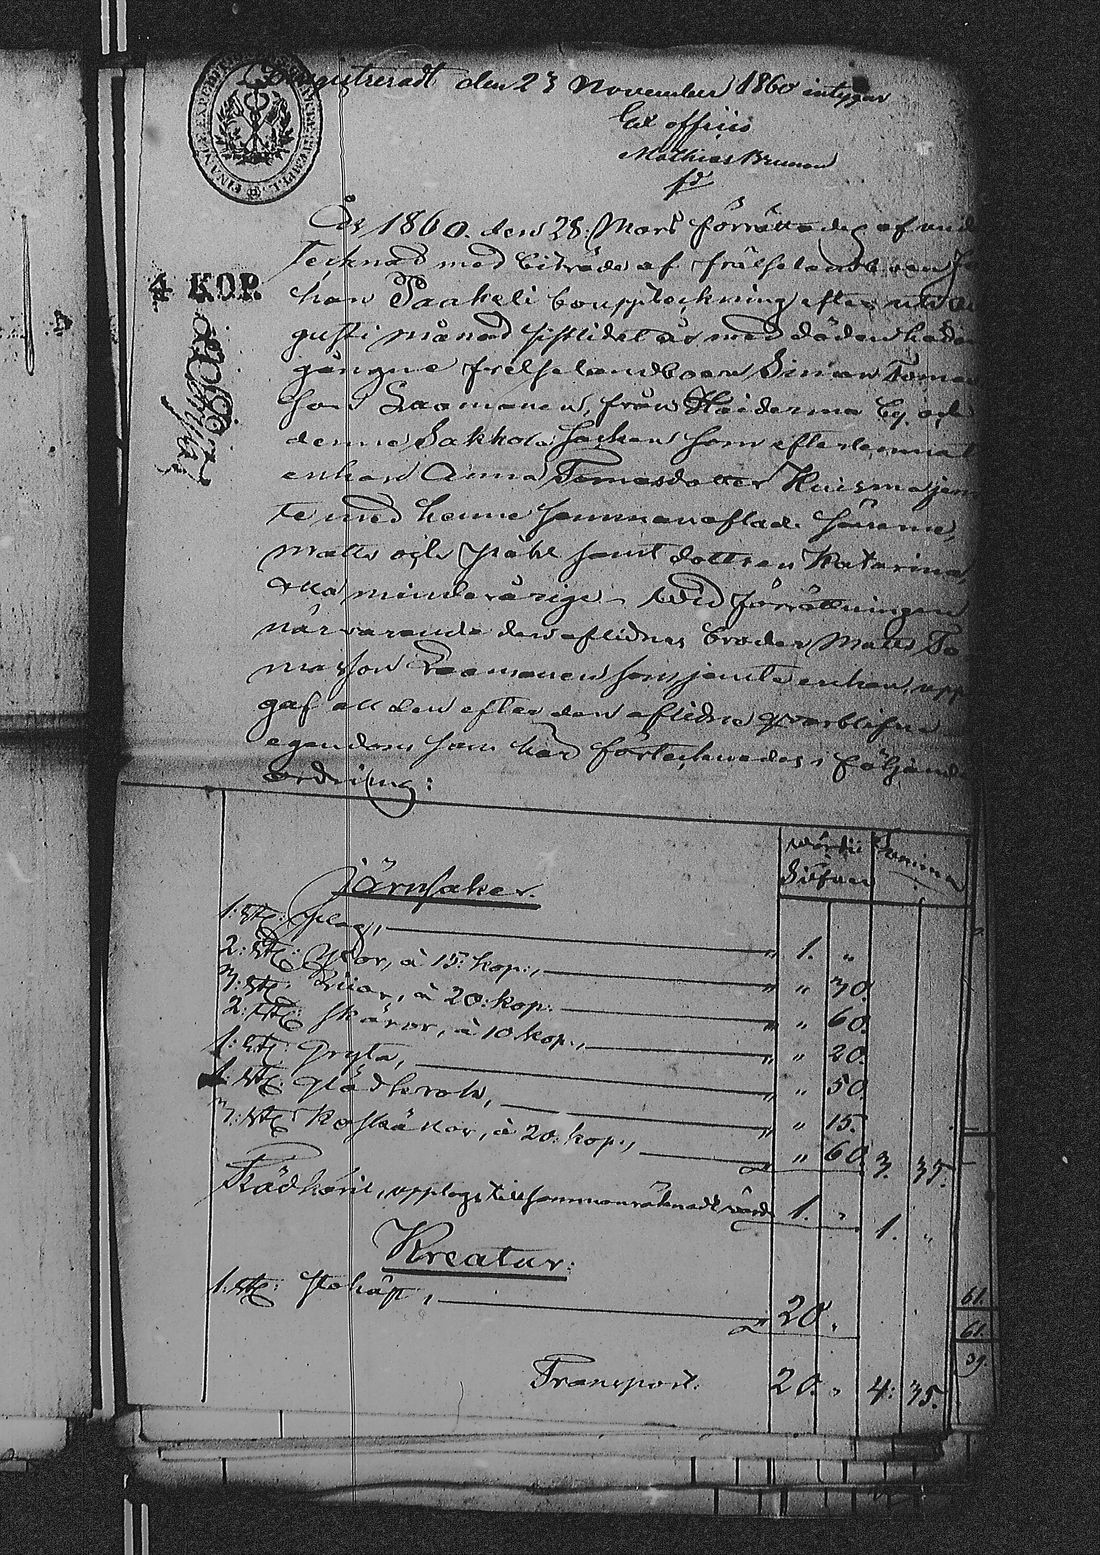 Registreradt den 23 November 1860 intygar
Ex officio
Mathias Brunou
4 KOP.
År 1860. den 28 Mars förrättades af und
tecknad med biträde af frälselandboen Jo
han Paakeli bouppteckning efter uti Au
gusti månad sistlidet år med döden hädan
gångne frelselandboen Simon Tomas
son Laamanen, från Haiderma by och
denne Sakkola socken som efterlemnat
enkan Anna Tomasdotter Kuisma jem
te med henne sammanaflade sönerne,
Matts och Påhl samt dottren Katarina,
alla minderårige. Wid förrättningen
närvarande den aflidnes broder Matts To
masson Laamanen som jemte enkan upp
gaf all den efter den aflidne qvarblifne
egendom som här förtecknades i följande
ordning:
wärde Summa
Silfver
Järnsaker.
1: st: plog, " 1. "
2: st: yxor, à 15: kop:, " " 30.
3: st: Liior, à 20: kop. " " 60.
2: st: skäror, à 10 kop., " " 20.
1: st: gryta, " " 50.
1: st: glödkrok, " " 15.
3: st: Koskällor, à 20: kop:, " 60. 3. 35.
Trädkäril, upptogs till sammanräknadt värde 1. " 1. "
Kreatur:
1: st: stohäst, 20. "
Transport. 20. " 4: 35.
61.
61.
39.